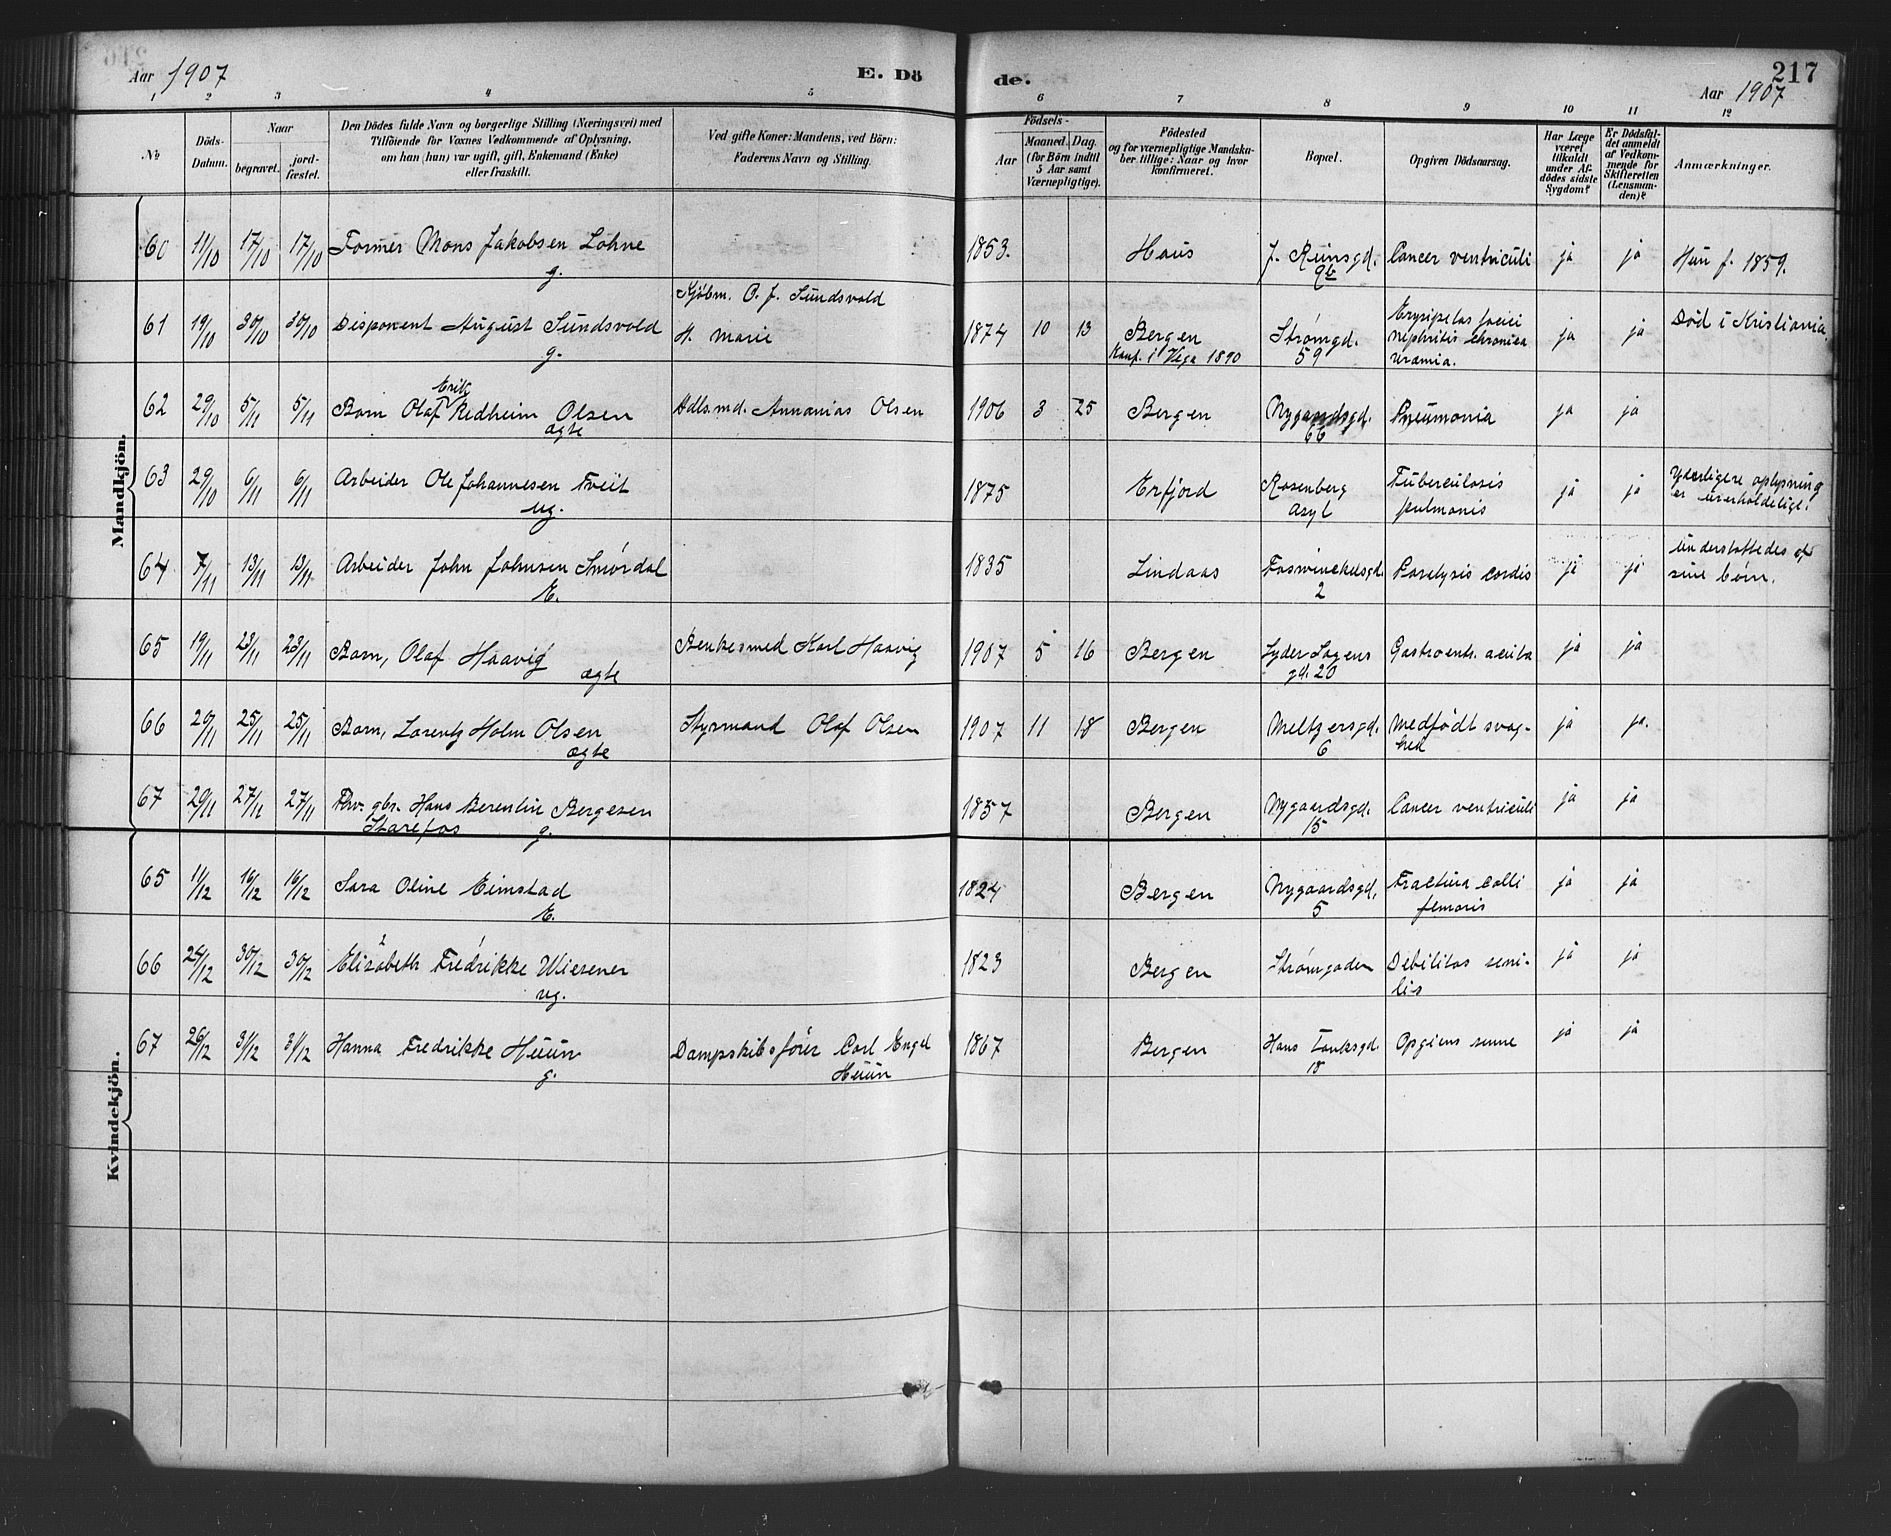 Aar 1907
E. Dö
de.
217
Aar 1907
1 2 3 4 5 6 7 8 9 10 11 12
№
Döds-
Datum.
Naar
begravet.
jord-
fæstet.
Den Dödes fulde Navn og borgerlige Stilling (Næringsvei) med
Tilföiende for Voxnes Vedkommende af Oplysning,
om han (hun) var ugift, gift, Enkemand (Enke)
eller fraskilt.
Ved gifte Koner: Mandens, ved Börn:
Faderens Navn og Stilling.
Födsels-
Aar
Maaned. Dag.
(for Börn indtil
5 Aar samt
Værnepligtige).
Födested
og for værnepligtige Mandska-
ber tillige: Naar og hvor
konfirmeret.
Bopæl.
Opgiven Dödsaarsag.
Har Læge
været
tilkaldt
under Af-
dødes sidste
Sygdom?
Er Dödsfal-
det anmeldt
af Vedkom-
mende for
Skifteretten
(Lensman-
den)?
Anmærkninger.
Mandkjön.
60 11/10 17/10 17/10 Former Mons Jakobsen Lohne 1853. Haus J. Runsgd. Cancer ventriculi ja ja Hun f. 1859.
g. 9b
Kjøbm. O. J. Sundsvold
61 19/10 30/10 30/10 Disponent August Sundsvold H. Marie 1874 10 13 Bergen Strømgd. Erysipelas faciei ja ja Død i Kristiania.
g. Konf. i Vega 1890 59 nephritis chronica
uræmia.
Erik
62 29/10 5/11 5/11 Barn Olaf Redheim Olsen Hdls.md. Annanias Olsen 1906 3 25 Bergen Nygaardsgd. Pneumonia ja ja
ægte 66
63 29/10 6/11 6/11 Arbeider Ole Johannesen Tveit 1875 Erfjord Rosenberg Tuberculosis ja ja Yderligere oplysning
ug. Asyl pulmonis er uerholdeligt.
64 7/11 13/11 13/11 Arbeider John Johnsen Smørdal 1835 Lindaas Foswinckelsgd. Paralysis cordis ja ja Understøttedes af
E. 2 sine børn.
65 19/11 23/11 23/11 Barn, Olaf Haavig Benkesmed Karl Haavig 1907 5 16 Bergen Lyder Sagens Gastroent. acuta ja ja
ægte gd. 20
66 20/11 25/11 25/11 Barn, Lorentz Holm Olsen Styrmand Olaf Olsen 1907 11 18 Bergen Meltzersgd. Medfødt svag- ja ja.
ægte 6 hed
67 20/11 27/11 27/11 Fhv. gbr. Hans Berentin Bergesen 1857 Bergen Nygaardsgd. Cancer ventriculi ja ja
Starefos g. 15
Kvindekjön.
65 11/12 16/12 16/12 Sara Oline Eimstad 1824 Bergen Nygaardsgd. Fractura colli ja ja
E. 5 femoris
66 24/12 30/12 30/12 Elisabeth Fredrikke Wiesener 1823 Bergen Strømgaden Debilitas seni- ja ja
ug. lis
67 26/12 31/12 31/12 Hanna Fredrikke Huun Dampskibsfører Carl Engel 1867 Bergen Hans Tanksgd. ja ja
g. Huun 18